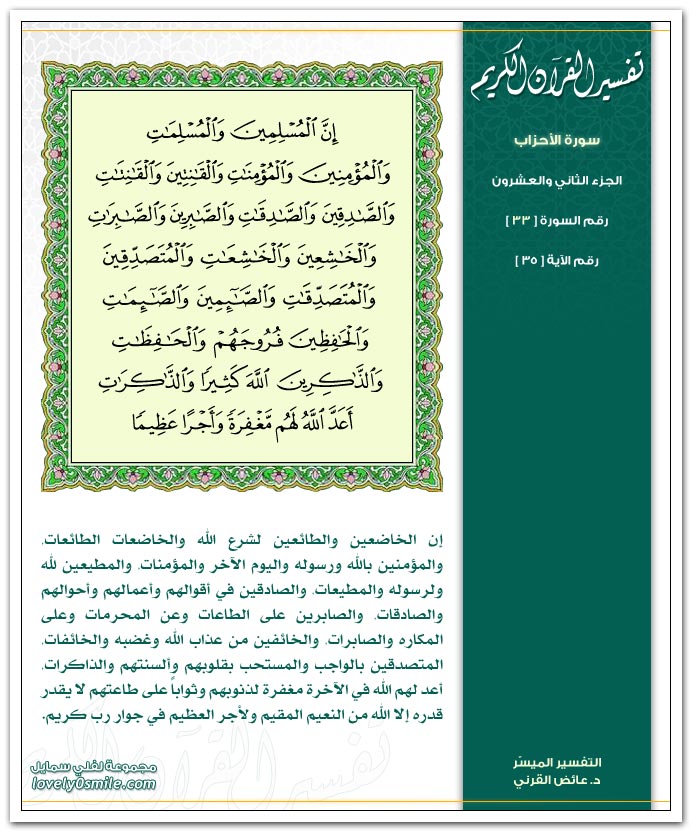 تفسير القرآن الكريم
سورة الأحزاب
الجزء الثاني والعشرون
رقم السورة [ ٣٣ ]
رقم الآية [ ٣٥ ]
إِنَّ ٱلْمُسْلِمِينَ وَٱلْمُسْلِمَٰتِ
وَٱلْمُؤْمِنِينَ وَٱلْمُؤْمِنَٰتِ وَٱلْقَٰنِتِينَ وَٱلْقَٰنِتَٰتِ
وَٱلصَّٰدِقِينَ وَٱلصَّٰدِقَٰتِ وَٱلصَّٰبِرِينَ وَٱلصَّٰبِرَٰتِ
وَٱلْخَٰشِعِينَ وَٱلْخَٰشِعَٰتِ وَٱلْمُتَصَدِّقِينَ
وَٱلْمُتَصَدِّقَٰتِ وَٱلصَّٰٓئِمِينَ وَٱلصَّٰٓئِمَٰتِ
وَٱلْحَٰفِظِينَ فُرُوجَهُمْ وَٱلْحَٰفِظَٰتِ
وَٱلذَّٰكِرِينَ ٱللَّهَ كَثِيرًا وَٱلذَّٰكِرَٰتِ
أَعَدَّ ٱللَّهُ لَهُم مَّغْفِرَةً وَأَجْرًا عَظِيمًا
إن الخاضعين والطائعين لشرع الله والخاضعات الطائعات،
والمؤمنين بالله ورسوله واليوم الآخر والمؤمنات، والمطيعين لله
ولرسوله والمطيعات، والصادقين في أقوالهم وأعمالهم وأحوالهم
والصادقات، والصابرين على الطاعات وعن المحرمات وعلى
المكاره والصابرات، والخائفين من عذاب الله وغضبه والخائفات،
المتصدقين بالواجب والمستحب بقلوبهم وألسنتهم والذاكرات،
أعد لهم الله في الآخرة مغفرة لذنوبهم وثواباً على طاعتهم لا يقدر
قدره إلا الله من النعيم المقيم ولأجر العظيم في جوار رب كريم.
التفسير الميسّر
د. عائض القرني
مجموعة لفلي سمايل
lovely0smile.com
تفسير القرآن الكريم